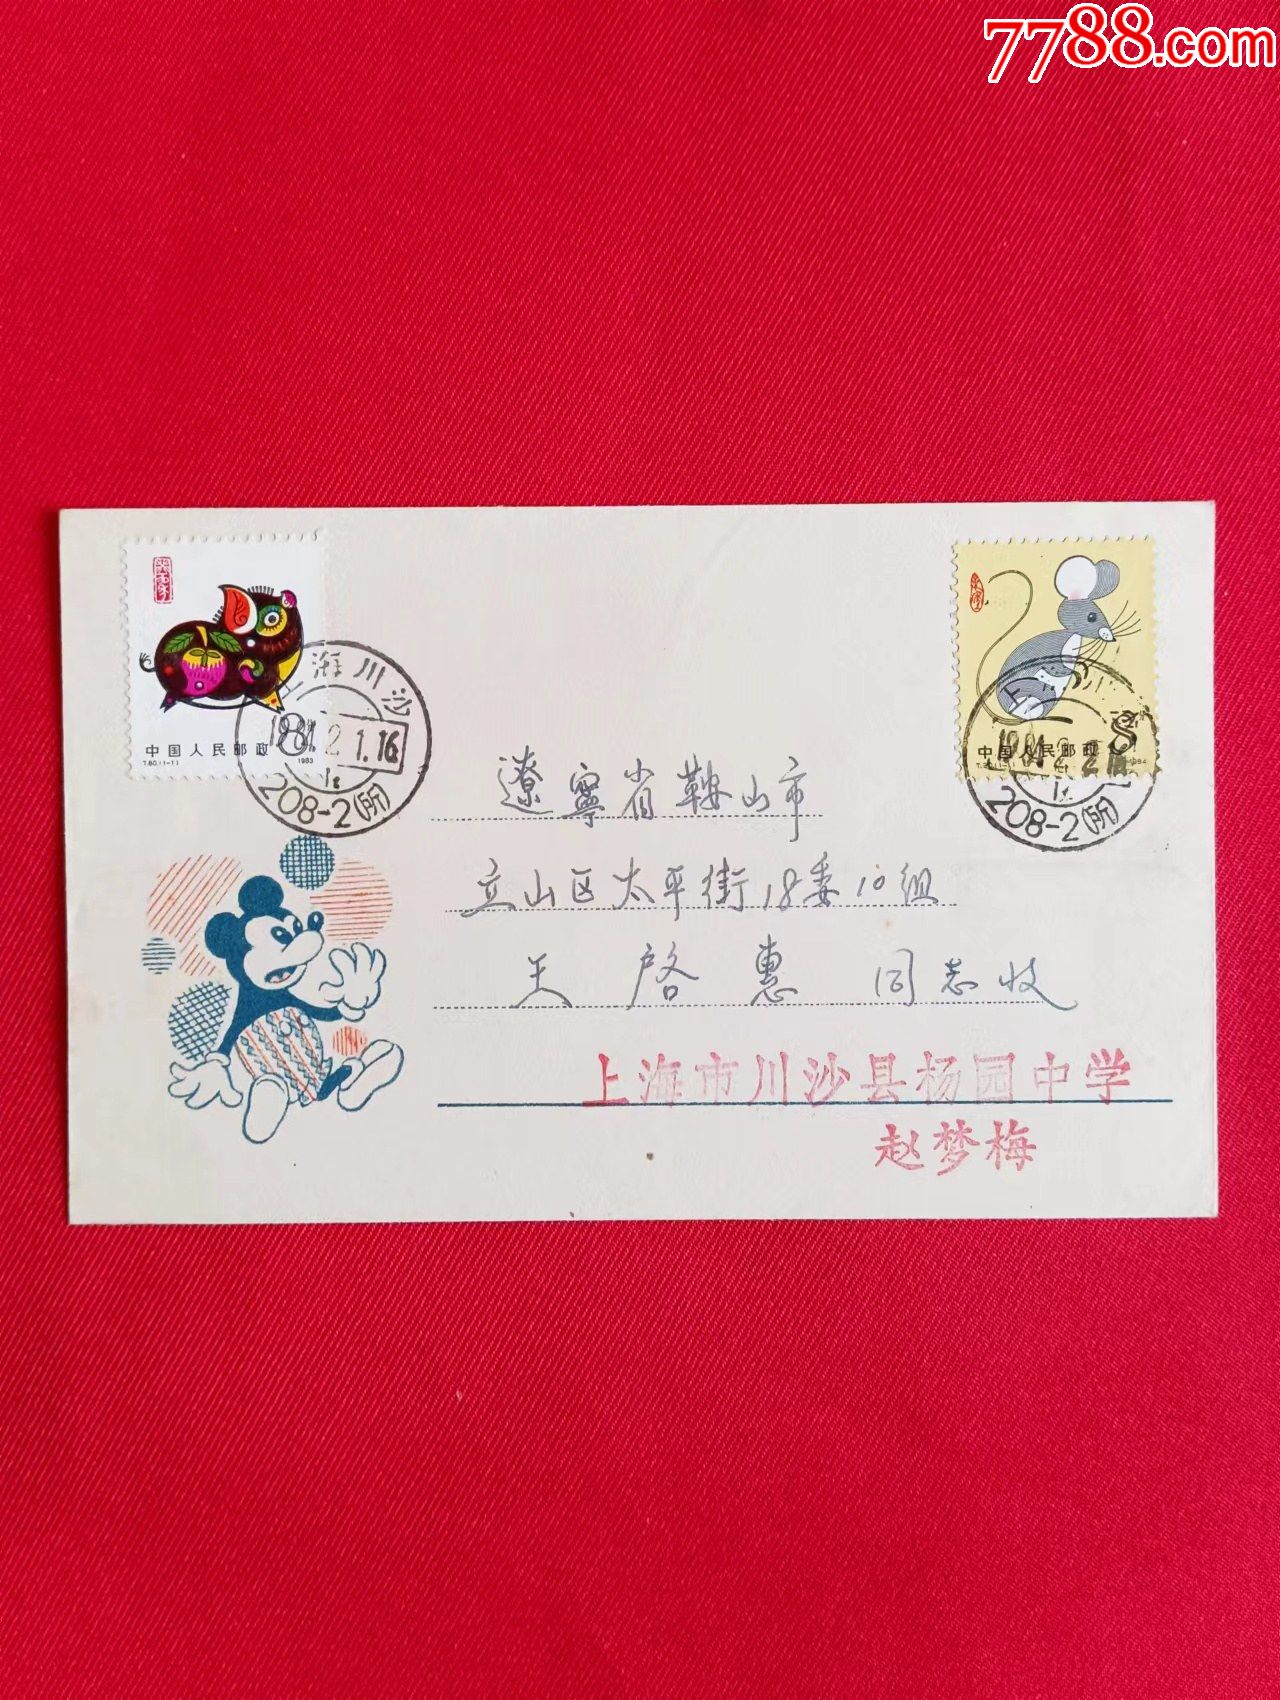 7788.com
癸亥
中国人民邮政 8分
T.80.(1-1) 1983
上海川沙
1984.2.1.16
208-2(所)
中国人民邮政 8分
T.90.(1-1) 1984
208-2(所)
遼寧省鞍山市
立山区太平街18委10组
王啓惠 同志收
上海市川沙县杨园中学
赵梦梅